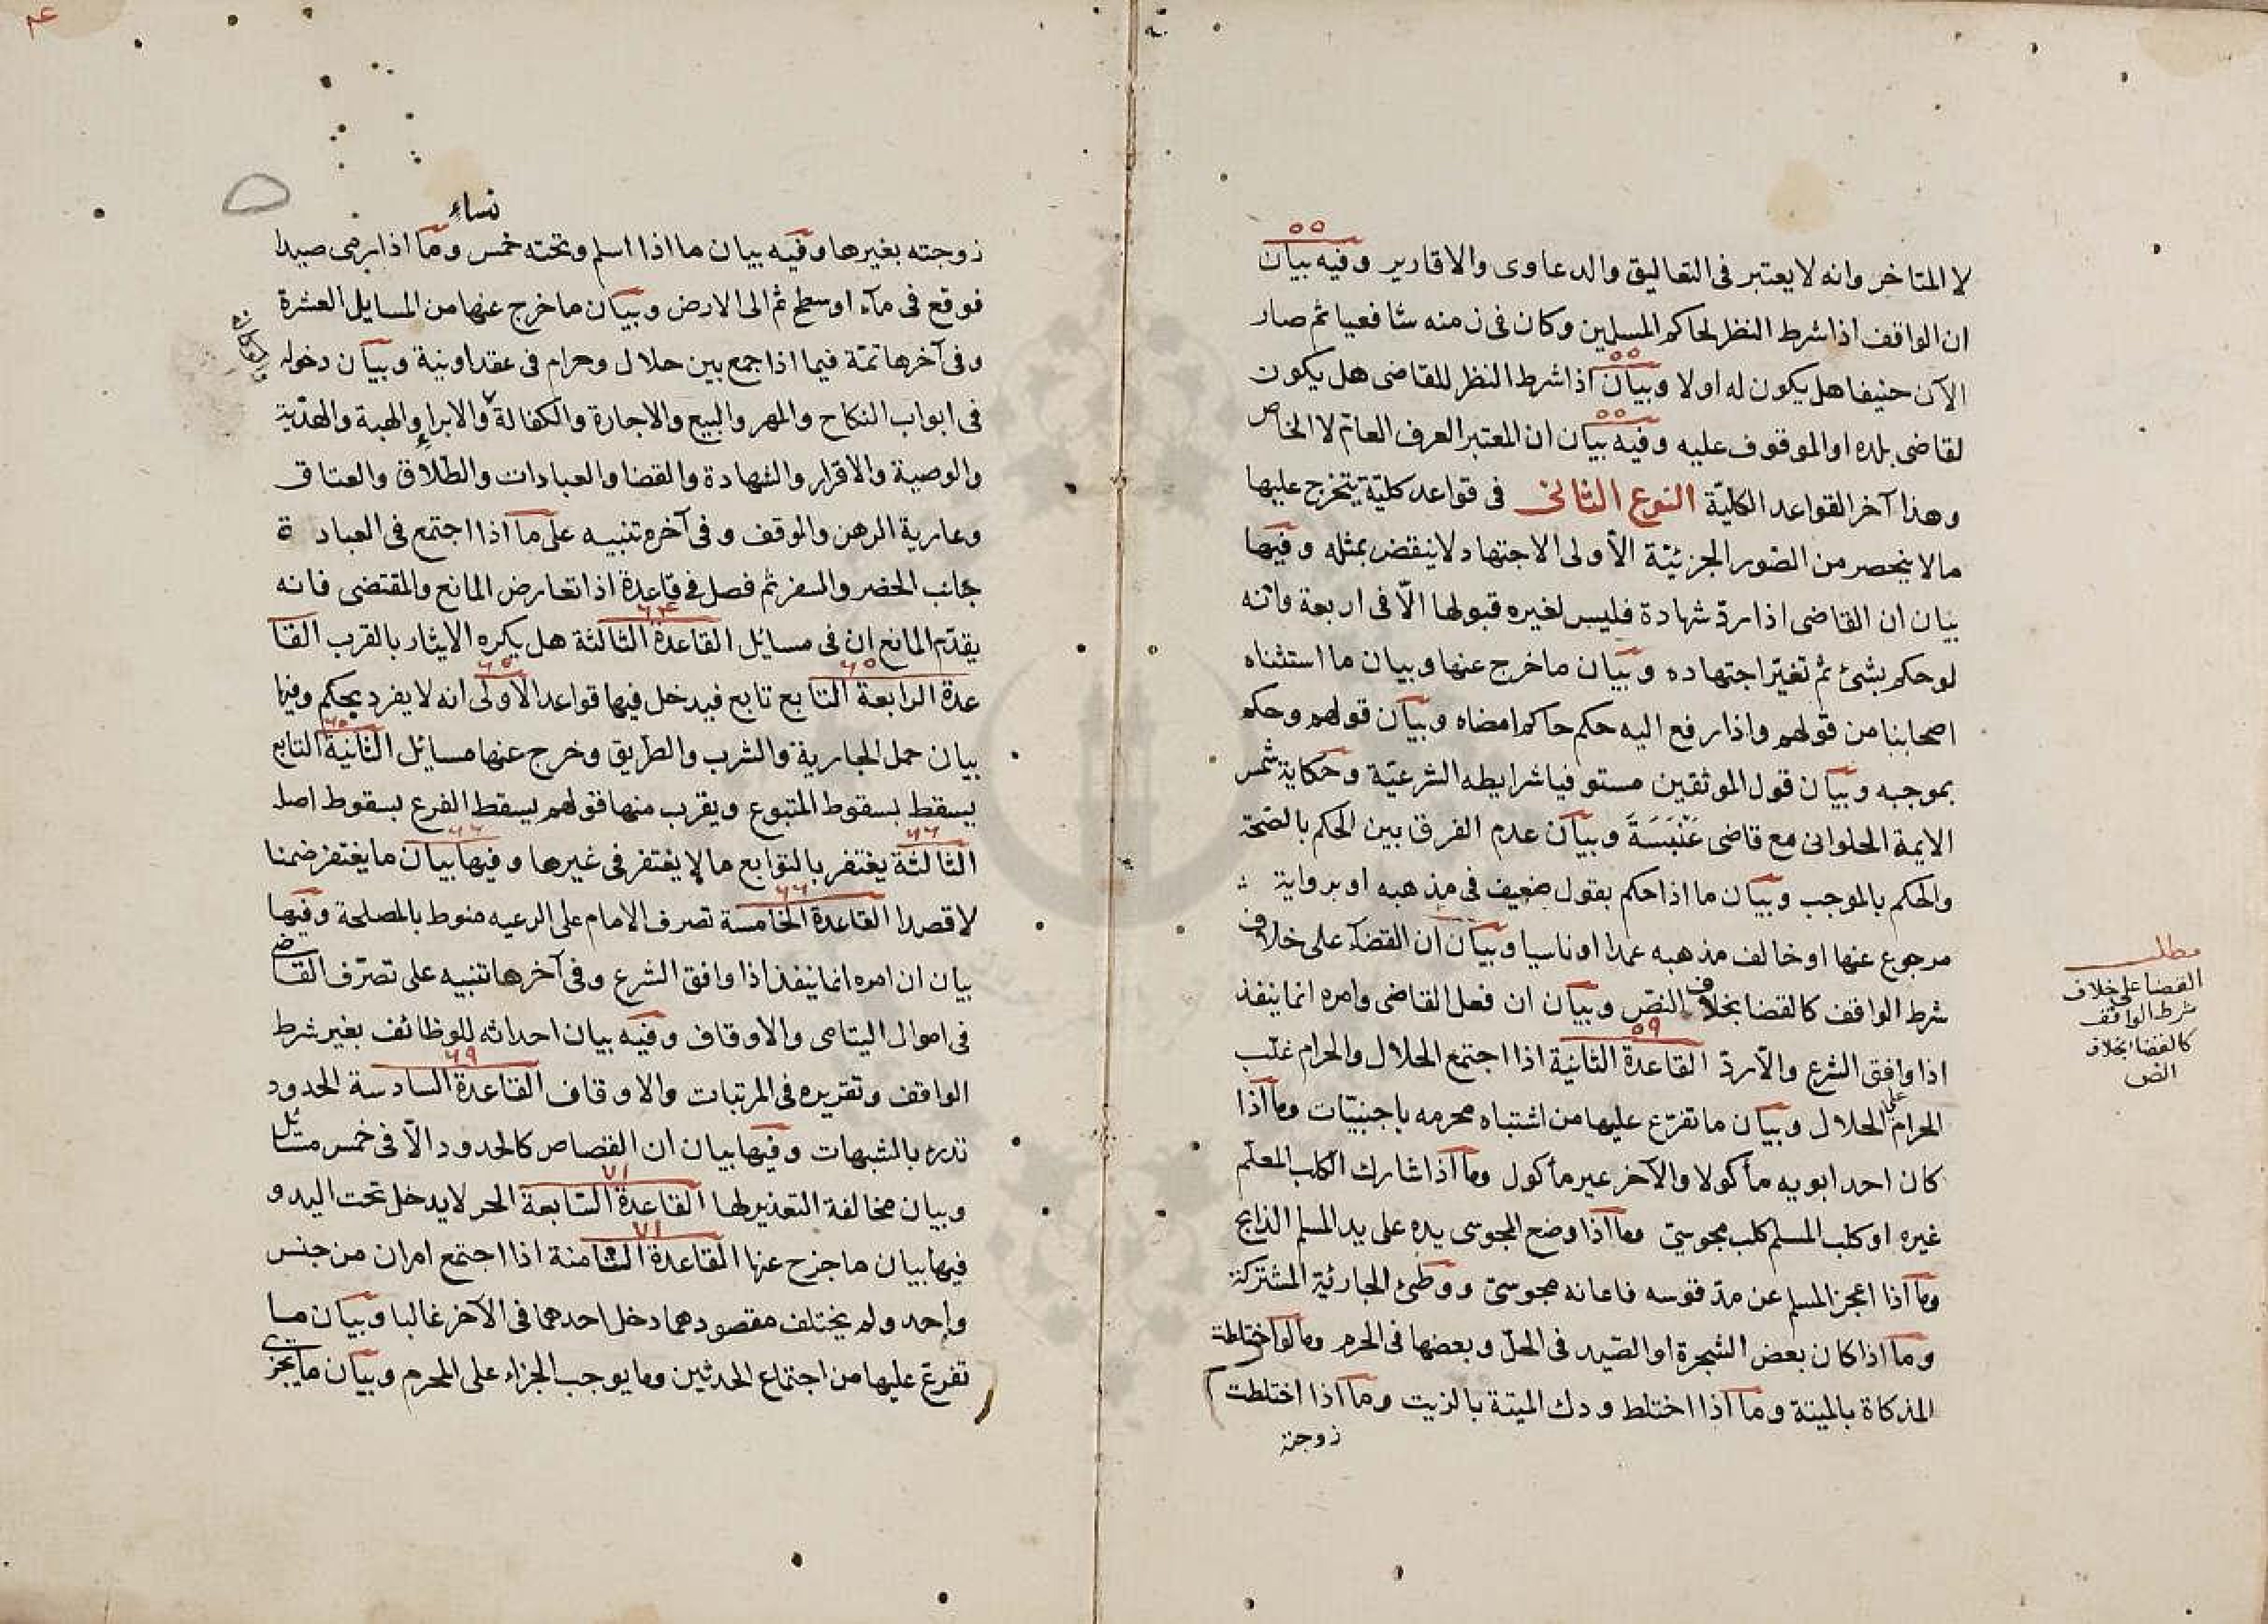 ٥٥
لا المتاخر وانه لا يعتبر فى التعاليق والدعاوى والاقارير وفيه بيان
ان الواقف اذا شرط النظر لحاكم المسلمين وكان فى زمنه شافعيا ثم صار
٥٥
الآن حنيفا هل يكون له اولا وبيان اذا شرط النظر للقاضى هل يكون
٥٥
لقاضى بلده او الموقوف عليه وفيه بيان ان المعتبر العرف العام لا الخاص
وهذا آخر القواعد الكليّة النوع الثانى فى قواعد كليّة يتخرج عليها
مالا ينحصر من الصّور الجزئيّة الأولى الاجتهاد لا ينقض بمثله وفيها
بيان ان القاضى اذا ردّ شهادة فليس لغيره قبولها الاّ فى اربعة وانه
لو حكم بشئ ثم تغيّر اجتهاده وبيان ما خرج عنها وبيان ما استثناه
اصحابنا من قولهم واذا رفع اليه حكم حاكم امضاه وبيان قولهم وحكم
بموجبه وبيان قول الموثقين مستوفيا شرايطه الشرعيّة وحكاية شمس
الايمة الحلوانى مع قاضى عَنْبَسَةَ وبيان عدم الفرق بين الحكم بالصّحة
والحكم بالموجب وبيان ما اذا حكم بقول ضعيف فى مذهبه او برواية
مرجوع عنها او خالف مذهبه عمدا او ناسيا وبيان ان القضاء على خلاف
شرط الواقف كالقضا بخلاف النصّ وبيان ان فعل القاضى وامره انما ينفذ
٥٩
اذا وافق الشرع والاّ ردّ القاعدة الثانية اذا اجتمع الحلال والحرام غلب
الحرام على الحلال وبيان ما تفرّع عليها من اشتباه محرمه باجنبيّات وما اذا
كان احد ابويه مأكولا والآخر غير مأكول وما اذا شارك الكلب المعلّم
غيره او كلب المسلم كلب مجوسىّ وما اذا وضع المجوسى يده على يد المسلم الذابح
وما اذا اعجز المسلم عن مدّ قوسه فاعانه مجوسىّ ووطئ الجارية المشتركة
وما اذا كان بعض الشجرة او الصّيد فى الحلّ وبعضها فى الحرم وما لو اختلطت
المذكاة بالميتة وما اذا اختلط ودك الميتة بالزيت وما اذا اختلطت
زوجته
مطلب
القضا على خلاف
شرط الواقف
كالقضا بخلاف
النص
نساء
زوجته بغيرها وفيه بيان ما اذا اسلم وتحته خمس وما اذا رمى صيدا
فوقع فى مآء او سطح ثم الى الارض وبيان ما خرج عنها من المسايل العشرة
وفى آخرها تتمة فيما اذا جمع بين حلال وحرام فى عقد او نية وبيان دخوله
فى ابواب النكاح والمهر والبيع والاجارة والكفالة والابراء والهبة والهديّة
والوكالة
والوصية والاقرار والشهادة والقضا والعبادات والطّلاق والعتاق
وعارية الرهن والوقف وفى آخره تنبيه على ما اذا اجتمع فى العبادة
جانب الحضر والسفر ثم فصل فى قاعدة اذا تعارض المانع والمقتضى فانه
٦٤
يقدّم المانع ان فى مسائل القاعدة الثالثة هل يكره الايثار بالقرب القا
٦٥ ٦٥
عدة الرابعة التابع تابع فيدخل فيها قواعد الأولى انه لا يفرد بحكم وفيها
٦٥
بيان حمل الجارية والشرب والطريق وخرج عنها مسايل الثانية التابع
يسقط بسقوط المتبوع ويقرب منها قولهم يسقط الفرع بسقوط اصله
٦٦ ٦٦
الثالثة يغتفر بالتوابع ما لا يغتفر فى غيرها وفيها بيان ما يغتفر ضمنا
٦٦
لا قصدا القاعدة الخامسة تصرف الامام على الرعيه منوط بالمصلحة وفيها
بيان ان امره انما ينفذ اذا وافق الشرع وفى آخرها تنبيه على تصرّف القاضى
فى اموال اليتامى والاوقاف وفيه بيان احداثه للوظائف بغير شرط
٦٩
الواقف وتقريره فى المرتبات والاوقاف القاعدة السادسة الحدود
تدرء بالشبهات وفيها بيان ان القصاص كالحدود الاّ فى خمس مسائل
٧١
وبيان مخالفة التعذير لها القاعدة السّابعة الحر لا يدخل تحت اليد و
٧١
فيها بيان ما خرج عنها القاعدة الثامنة اذا اجتمع امران من جنس
واحد ولم يختلف مقصودهما دخل احدهما فى الآخر غالبا وبيان ما
تفرع عليها من اجتماع الحدثين وما يوجب الجزاء على المحرم وبيان ما يجزى